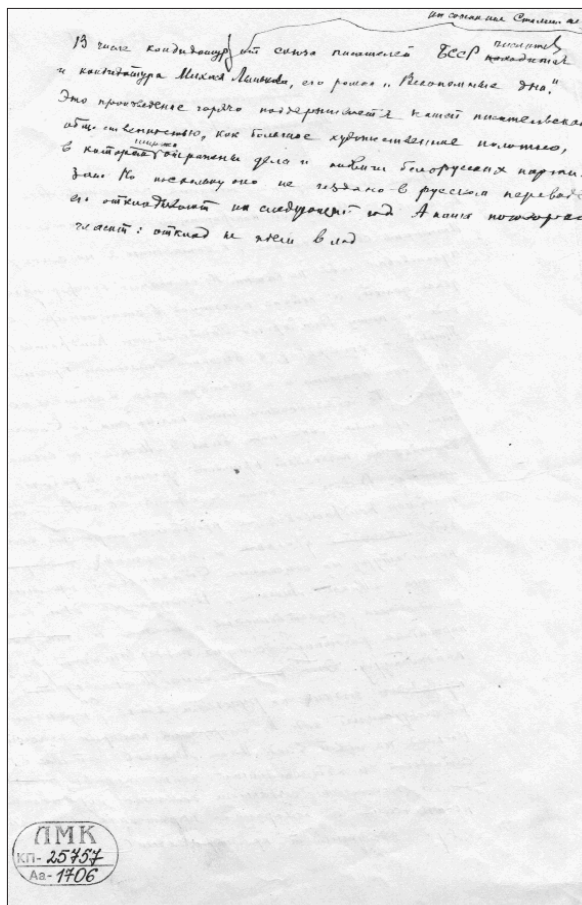 на соискание Сталин пр
В числе кандидатур от союза писателей БССР числится находится
и кандидатура Михася Лынькова, его роман „Векопомные дни."
Это произведение горячо поддерживается нашей писательской
общественностью, как большое художественное полотно,
в котором широко отражены дела и подвиги белорусских парти-
зан. Но поскольку оно не издано в русском переводе
его откладывают на следующий год. А наша поговорка
гласит: откład не идет в лад
ЛМК
КП-25757
Аа-1706